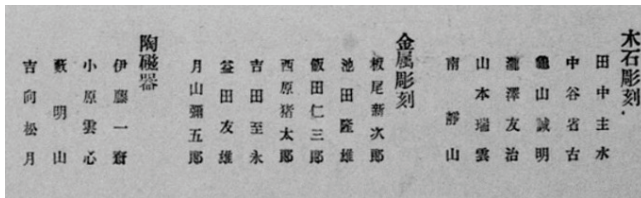 木石彫刻
田中主水
中谷省古
龜山誠明
瀧澤友治
山本瑞雲
南靜山
金屬彫刻
板尾新次郎
池田隆雄
飯田仁三郎
西原猪太郎
吉田至永
益田友雄
月山彌五郎
陶磁器
伊藤一齋
小原雲心
藪明山
吉向松月